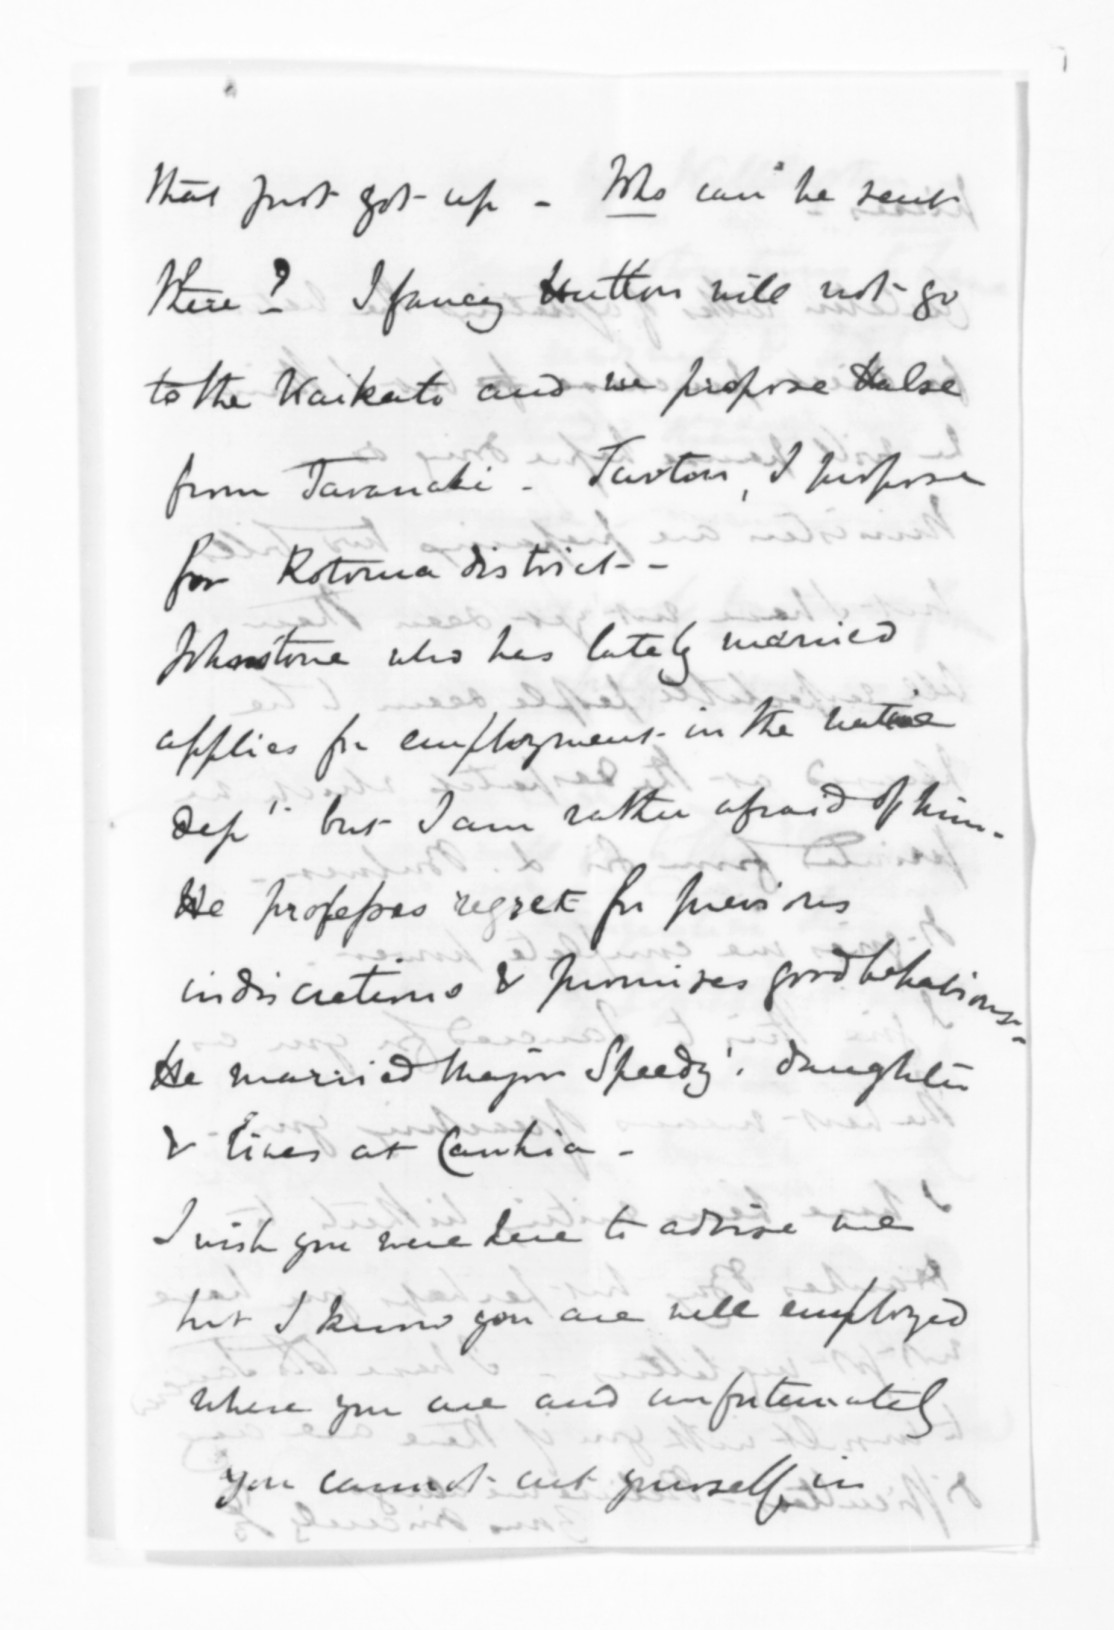 that just got up - Who can be sent
there? I fancy Hutton will not go
to the Waikato and we propose Halse
from Taranaki - I propose
for Rotorua district -
Johnstone who has lately married
applies for employment in the native
dept but I am rather afraid of him -
He professes regret for previous
indiscretions & promises good behaviour -
He married Major Speedy's daughter
& lives at
I wish you were here to advise me
but I know you are well employed
where you are and unfortunately
you cannot cut yourself in